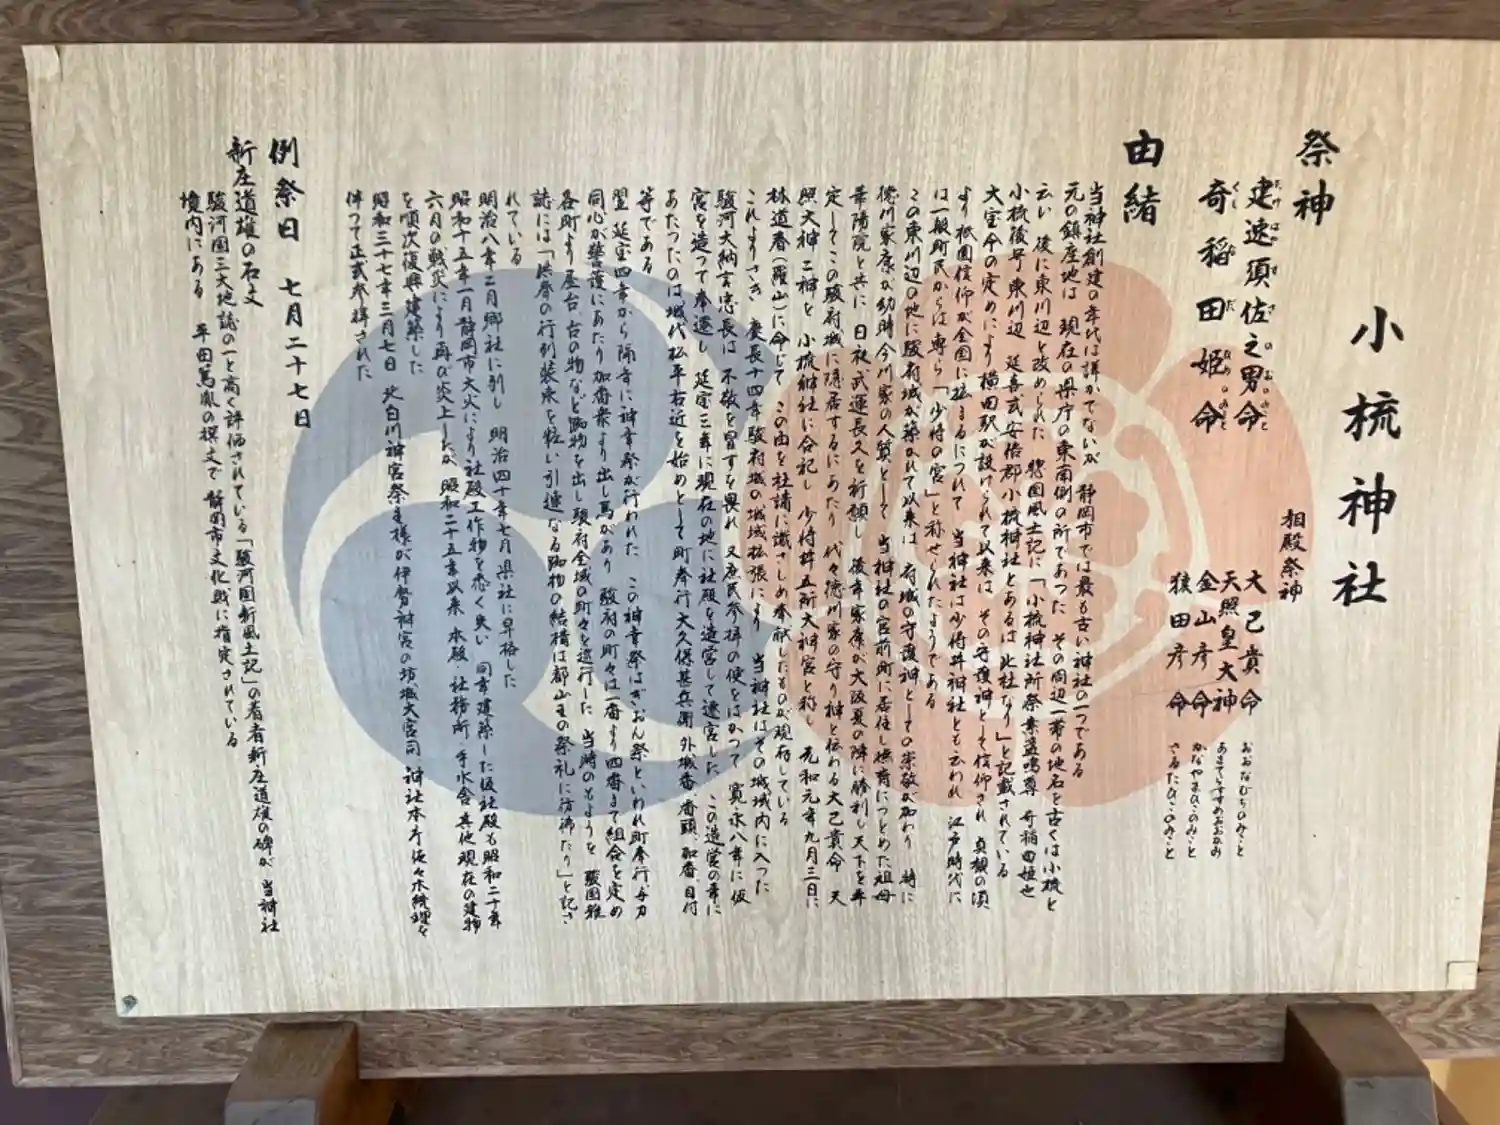 小梳神社
祭神
建速須佐之男命
たけはやすさのおのみこと
奇稲田姫命
くしいなだひめのみこと
相殿祭神
大己貴命 おおなむちのみこと
天照皇大神 あまてらすすめおおかみ
金山彦命 かなやまひこのみこと
猿田彦命 さるたひこのみこと
由緒
当神社創建の年代は詳かでないが 静岡市では最も古い神社の一つである
元の鎮座地は 現在の県庁の東南側の所であった その周辺一帯の地名を古くは小梳と
云い 後に東川辺と改められた 惣国風土記に「小梳神社所祭素盞嗚尊 奇稲田姫也
小梳後号東川辺 延喜式安倍郡小梳神社とあるは此社なり」と記載されている
大宝令の定めにより横田駅が設けられて以来は その守護神として信仰され 貞観の頃
より祇園信仰が全国に拡まるにつれて 当神社は少将井神社とも云われ 江戸時代に
は一般町民からは専ら「少将の宮」と称せられたようである
この東川辺の地に駿府城が築かれて以来は 府城の守護神としての崇敬が加わり 特に
徳川家康が幼時今川家の人質として 当神社の宮前町に居住し撫育につとめた祖母
華陽院と共に 日夜武運長久を祈願し 後年家康が大阪夏の陣に勝利し天下を平
定してこの駿府城に隠居するにあたり 代々徳川家の守り神と伝わる大己貴命 天
照大神二神を 小梳神社に合祀し 少将井五所大神宮と称し 元和元年九月三日に
林道春(羅山)に命じて この由を社記に識さしめ奉献したものが現存している
これよりさき 慶長十四年駿府城の城域拡張により 当神社はその城域内に入った
駿河大納言忠長は 不敬を冒すを畏れ 又庶民参拝の便をはかって 寛永八年に仮
宮を造って奉遷し 延宝三年に現在の地に社殿を造営して遷宮した この造営の事に
あたったのは城代松平右近を始めとして町奉行大久保甚兵衛 外城番、番頭、加番、目付
等である
翌 延宝四年から隔年に神幸祭が行われた この神幸祭はぎおん祭といわれ町奉行与力
同心が警護にあたり加番衆より出し馬があり 駿府の町々は一番より四番まで組合を定め
各町より屋台、古の物など踟物を出し駿府全域の町々を巡行した 当時のもようを 駿国雑
誌には「供奉の行列装束を粧い引連なる踟物の結構は都山王の祭礼に彷彿たり」と記さ
れている
明治八年二月郷社に列し 明治四十年七月県社に昇格した
昭和十五年一月静岡市大火により社殿工作物を悉く失い 同年建築した仮社殿も昭和二十年
六月の戦災により再び炎上したが 昭和二十五年以来 本殿 社務所 手水舎 其他現在の建物
を順次復興建築した
昭和三十七年三月七日 北白川神宮祭主様が伊勢神宮の坊城大宮司 神社本庁佐々木統理を
伴って正式参拝された
例祭日 七月二十七日
新庄道雄の石文
駿河国三大地誌の一と高く評価されている「駿河国新風土記」の著者新庄道雄の碑が 当神社
境内にある 平田篤胤の撰文で 静岡市文化財に指定されている